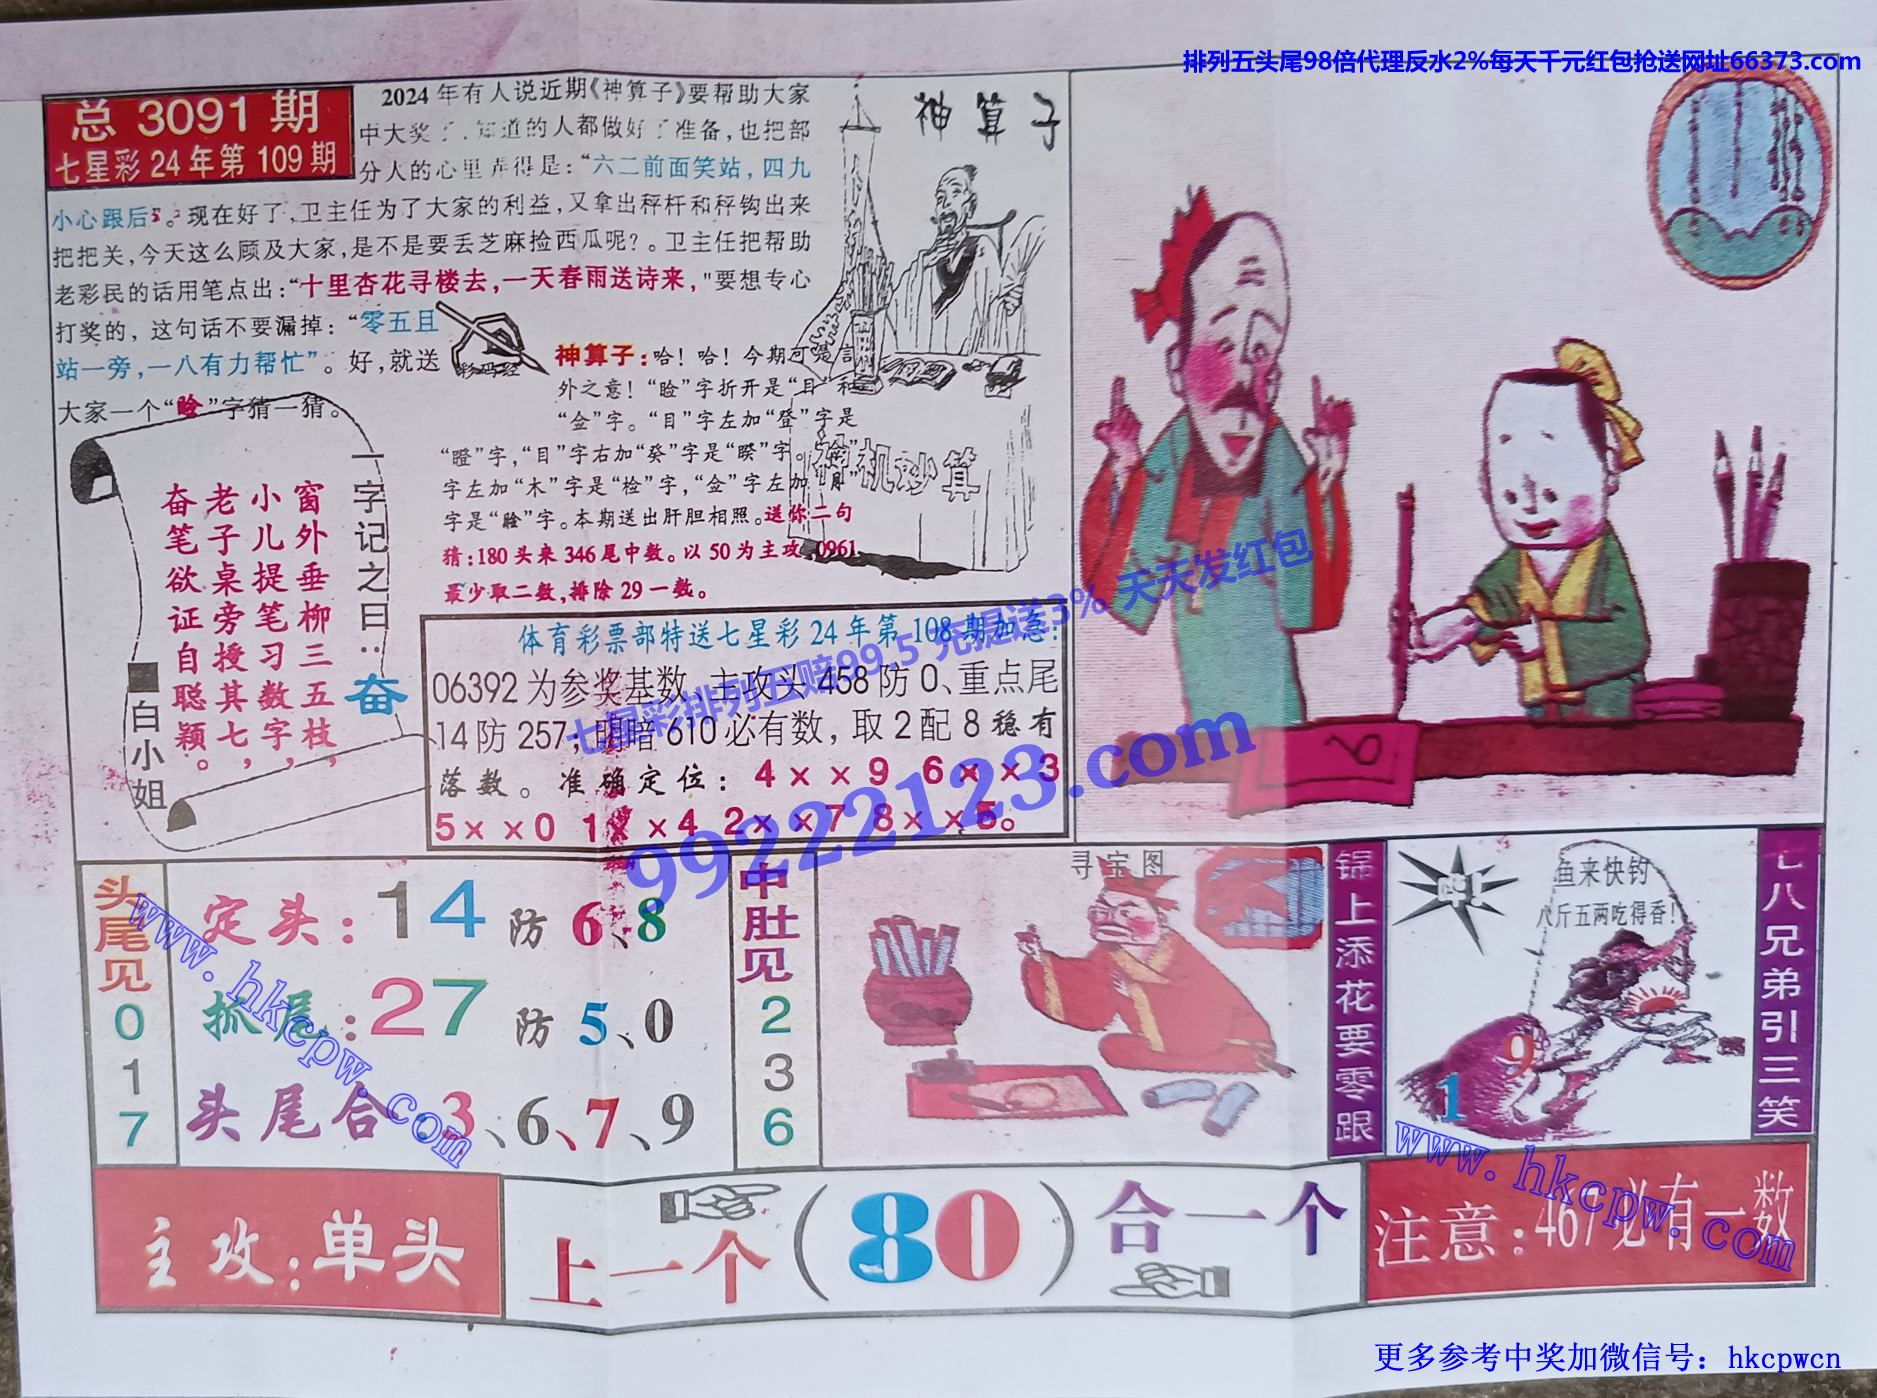 排列五头尾98倍代理反水2%每天千元红包抢送网址66373.com
总 3091 期
七星彩 24 年 第 109 期
2024年有人说近期《神算子》要帮助大家
中大奖了,知道的人都做好了准备,也把部
分人的心里弄得是:“六二前面笑站,四九
小心跟后”。现在好了,卫主任为了大家的利益,又拿出秤杆和秤钩出来
把把关,今天这么顾及大家,是不是要丢芝麻捡西瓜呢?。卫主任把帮助
老彩民的话用笔点出:“十里杏花寻楼去,一天春雨送诗来,"要想专心
打奖的,这句话不要漏掉:“零五且
站一旁,一八有力帮忙”。好,就送
大家一个“睑”字猜一猜。
彩玛经
神算子
神算子:哈!哈!今期可是言
外之意!“睑”字折开是“目”和
“金”字。“目”字左加“登”字是
“瞪”字,“目”字右加“癸”字是“睽”字。
字左加“木”字是“检”字,“金”字左加“月”
字是“脸”字。本期送出肝胆相照。送你二句
猜:180头来346尾中数。以50为主攻,0961
最少取二数,排除29一数。
神机妙算
一字记之曰:奋
窗外垂柳三五枝,
小儿提笔习数字,
老子桌旁授其七,
奋笔欲证自聪颖。
白小姐
体育彩票部特送七星彩24年第108期加急:
06392为参奖基数,主攻头458防0、重点尾
14防257;明暗610必有数,取2配8稳有
落数。准确定位:4××9 6××3
5××0 1××4 2××7 8××5。
七星彩排列五赔99.5 充提送3% 天天发红包
99222123.com
头尾见
0
1
7
定头:14防6、8
抓尾:27防5、0
头尾合:3、6、7、9
中肚见
2
3
6
寻宝图
锦上添花要零跟
鱼来快钓
八斤五两吃得香!
1
9
七八兄弟引三笑
www.hkcpw.com
www.hkcpw.com
主攻:单头
上一个(80)合一个
注意:467必有一数
更多参考中奖加微信号:hkcpwcn